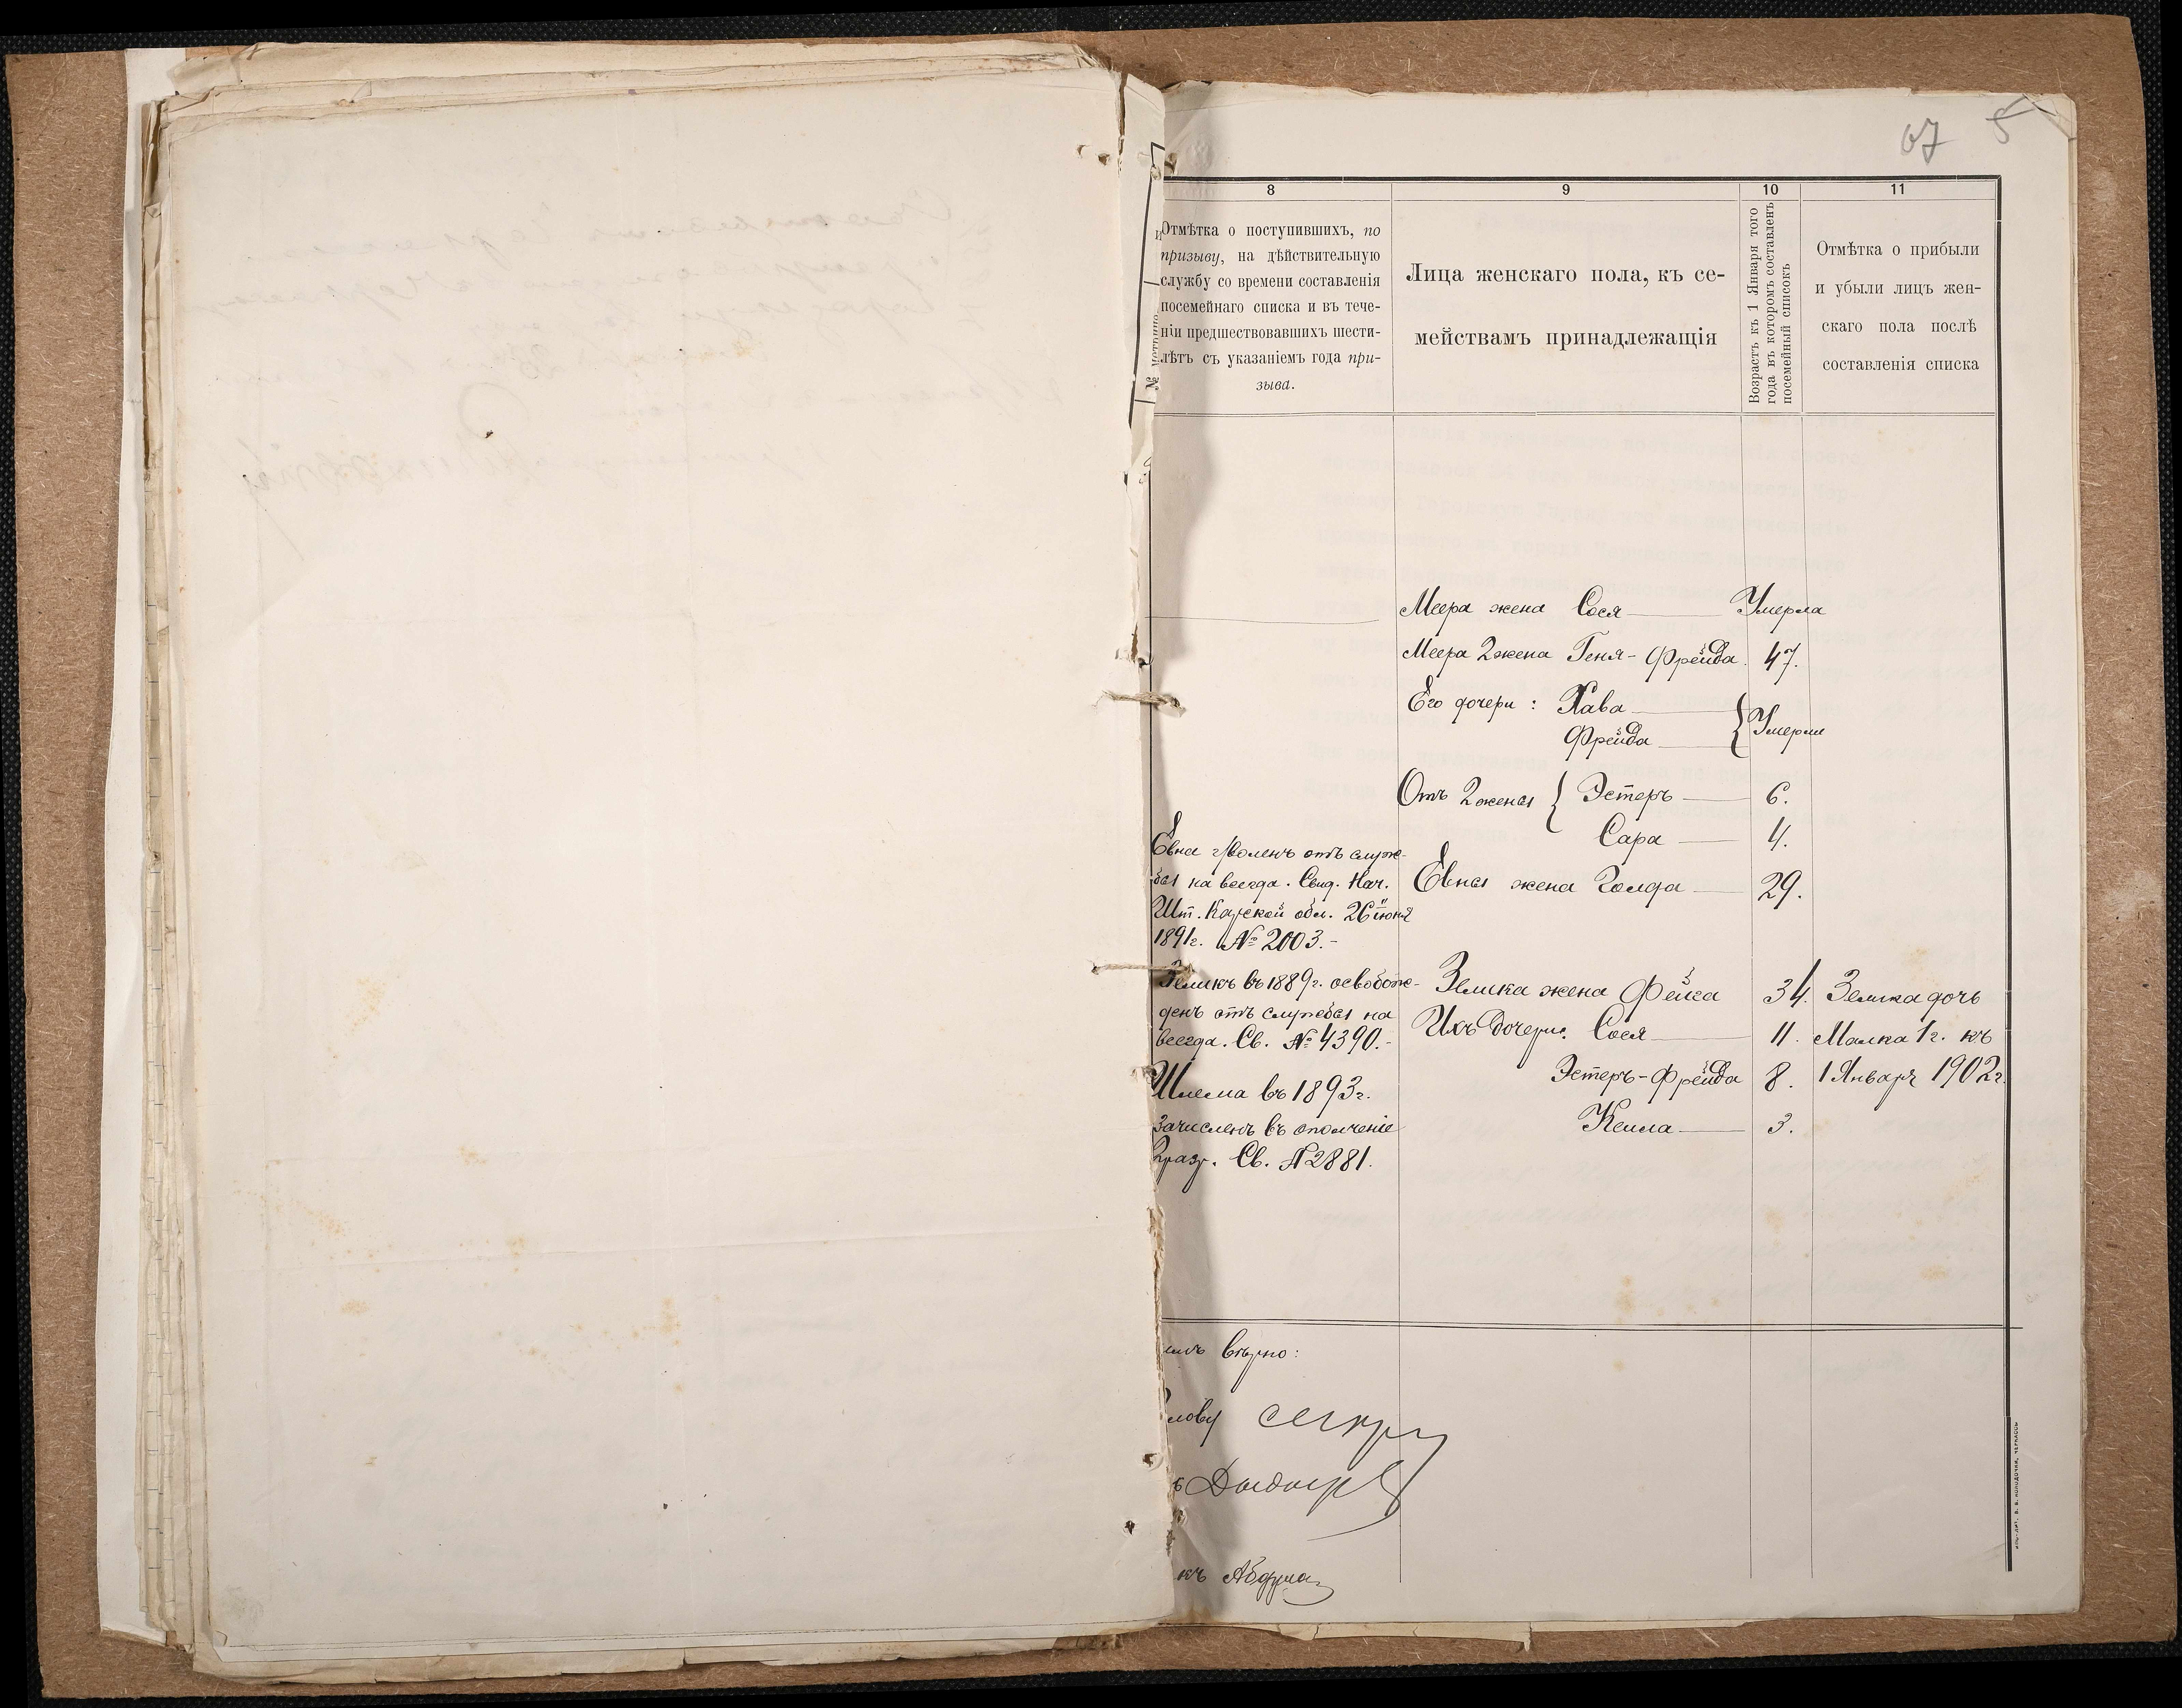 67 5
8
9
10
11
Отмѣтка о поступившихъ, по
призыву, на дѣйствительную
службу со времени составленія
посемейнаго списка и въ тече-
ніи предшествовавшихъ шести-
лѣтъ съ указаніемъ года при-
зыва.
Лица женскаго пола, къ се-
мействамъ принадлежащія
Возрастъ къ 1 Января того
года въ которомъ составленъ
посемейный списокъ
Отмѣтка о прибыли
и убыли лицъ жен-
скаго пола послѣ
составленія списка
Меера жена Сося Умерла
Меера 2 жена Геня-Фрейда. 47.
Его дочери: Хава
Фрейда } Умерли
Отъ 2 жены { Эстеръ 6.
Сара 4.
Евна уволенъ отъ служ-
бы на всегда. Свид. Нач.
Шт. Карской обл. 26 июня
1891г. № 2003.-
Евны жена Голда 29.
Зеликъ въ 1889г. освобож-
денъ отъ службы на
всегда. Св. № 4390.-
Шлема въ 1893г.
зачисленъ въ ополченіе
2 разр. Св. № 2881.
Зелика жена Фейга 34.
Ихъ дочери: Сося 11.
Эстеръ-Фрейда 8.
Кейла 3.
Зелика дочь
Малка 1г. къ
1 Января 1902г.
вѣрно: